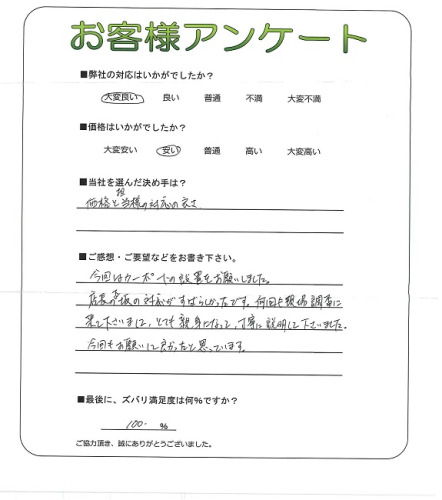 お客様アンケート
■弊社の対応はいかがでしたか？
大変良い 良い 普通 不満 大変不満
■価格はいかがでしたか？
大変安い 安い 普通 高い 大変高い
■当社を選んだ決め手は？
価格と担当様の対応の良さ
■ご感想・ご要望などをお書き下さい。
今回はカーポートの設置をお願いしました。
店長の対応がすばらしかったです。何回も現場調査に
来て下さいまして、とても親身になって、丁寧に説明して下さいました。
今回もお願いして良かったと思っています。
■最後に、ズバリ満足度は何％ですか？
100 ％
ご協力頂き、誠にありがとうございました。